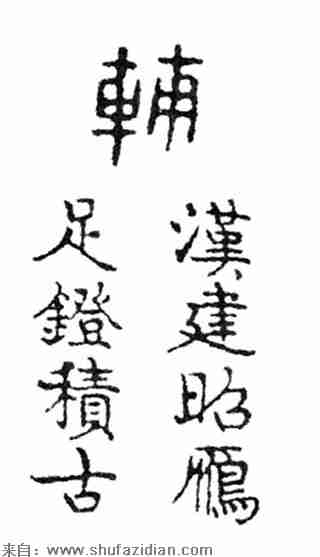 輔
漢建昭鴈
足鐙積古
来自：www.shufazidian.com